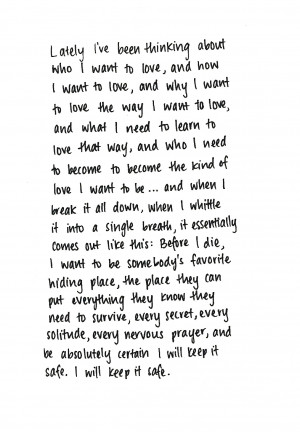 Lately I've been thinking about
who I want to love, and how
I want to love, and why I want
to love the way I want to love,
and what I need to learn to
love that way, and who I need
to become to become the kind of
love I want to be... and when I
break it all down, when I whittle
it into a single breath, it essentially
comes out like this: Before I die,
I want to be somebody's favorite
hiding place, the place they can
put everything they know they
need to survive, every secret, every
solitude, every nervous prayer, and
be absolutely certain I will keep it
safe. I will keep it safe.